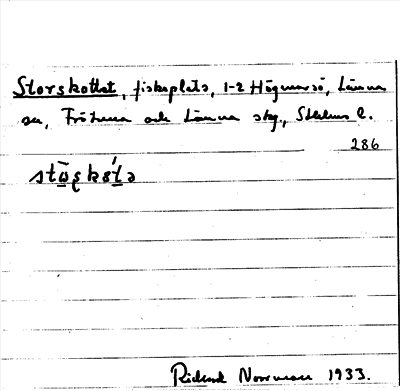 Storskottet, fiskeplats, 1-2 Högmarsö, Länna
sn, Frötuna och Länna skg., Sthlms l.
286
Rickard Norrman 1933.